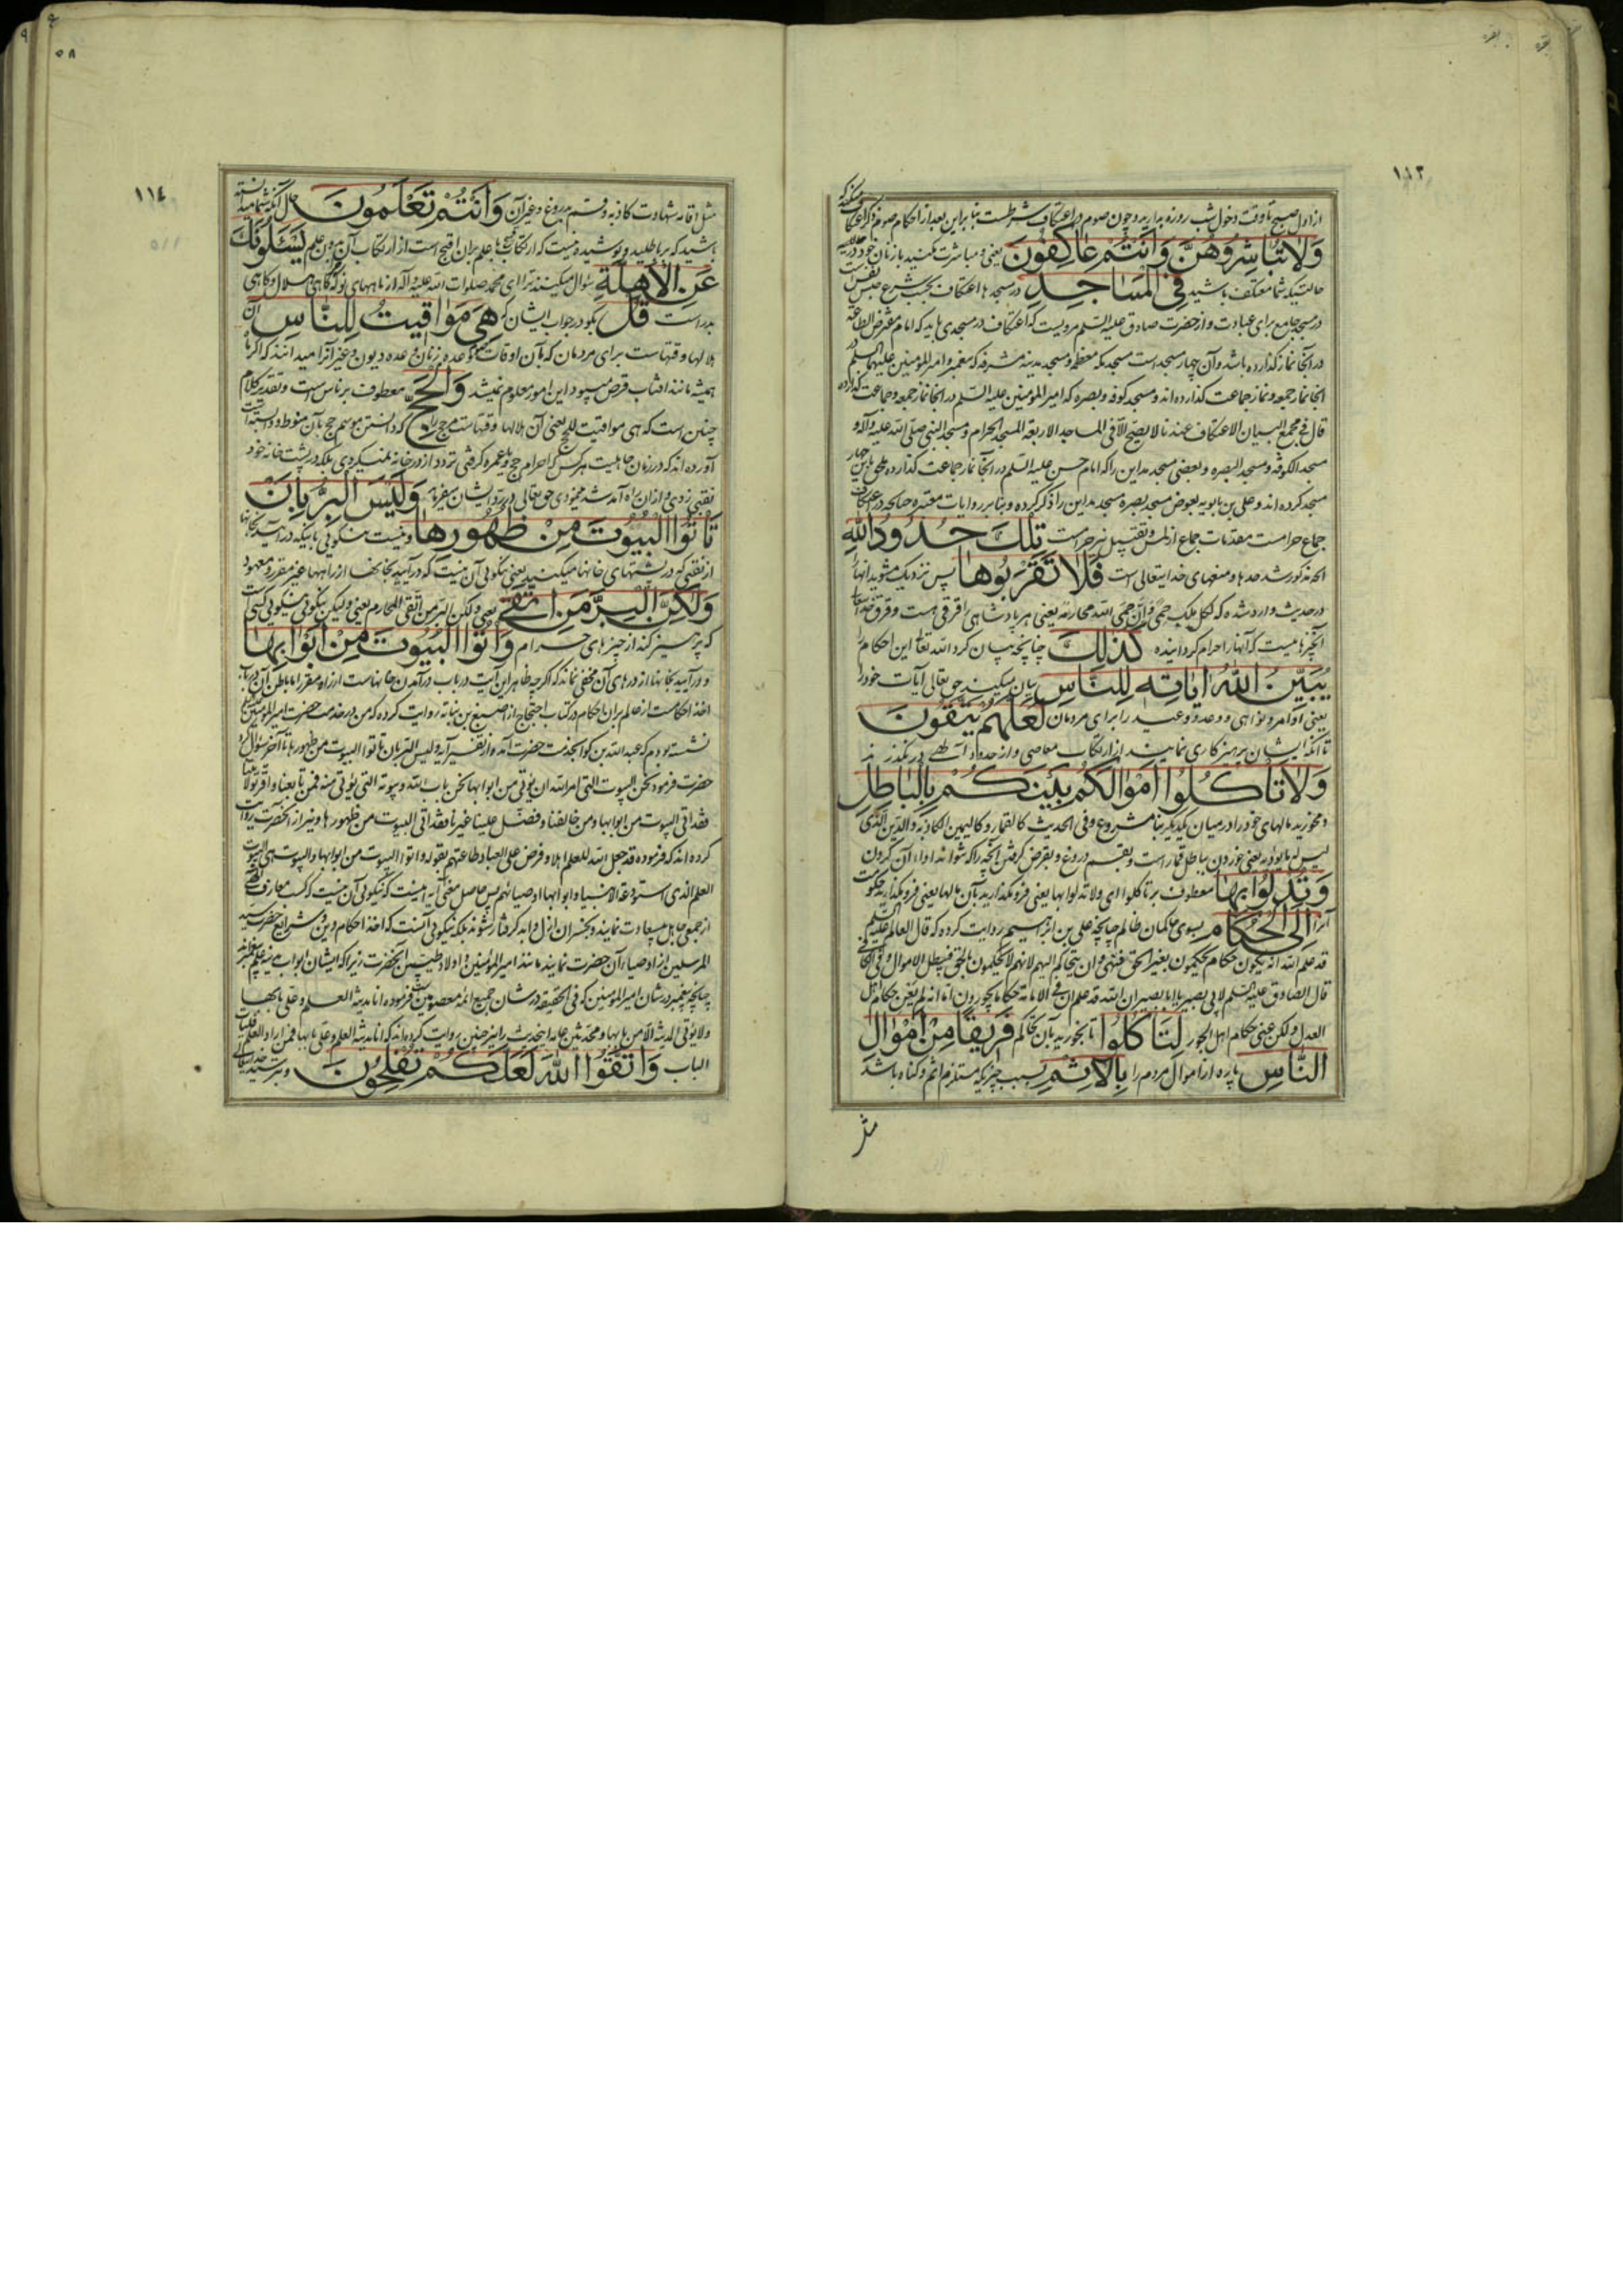 از اول صبح تا وقت دخول شب روزه بدارید و چون صوم در اعتکاف شرطست بنابراین بعد از احکام صوم ذکر اعتکاف
وَلَا تُبَاشِرُوهُنَّ وَأَنْتُمْ عَاكِفُونَ یعنی و مباشرت مکنید با زنان خود در
حالتیکه شما معتکف باشید فِي الْمَسَاجِدِ در مسجدها اعتکاف بحسب شرع حبس نفس است
در مسجد جامع برای عبادت و از حضرت صادق علیه السلم مرویست که اعتکاف در مسجدی باید که امام مفترض الطاعة
در آنجا نماز گذارده باشد و آن چهار مسجد است مسجد مکه معظمه و مسجد مدینه مشرفه که پیغمبر و امیر المؤمنین علیهما السلم در
آنجا نماز جمعه و نماز جماعت گذارده اند و مسجد کوفه و بصره که امیر المؤمنین علیه السلم در آنجا نماز جمعه و جماعت گذارده
قال فی مجمع البیان الاعتکاف عندنا لا یصح الا فی المساجد الاربعة المسجد الحرام و مسجد النبی صلی الله علیه و آله و
مسجد الکوفة و مسجد البصره و بعضی مسجد مداین را که امام حسن علیه السلم در آنجا نماز جماعت گذارده
مسجد کرده اند و علی بن بابویه بعوض مسجد بصره مسجد مداین را ذکر کرده و بنابر روایات معتبره چنانچه در اعتکاف
جماع حرامست مقدمات جماع از لمس و تقبیل نیز حرامست تِلْكَ حُدُودُ اللهِ
مذکور شد حدها و منعهای خدایتعالی است فَلَا تَقْرَبُوهَا پس نزدیک مشوید آنها را
در حدیث وارد شده که لکل ملک حمی و ان حمی الله محارمه یعنی هر پادشاهی را قرقی هست و قرق خدایتعالی
آنچیزهاییست که آنها را حرام گردانیده كَذَلِكَ چنانچه بیان کرد الله تعالی این احکام را
يُبَيِّنُ اللهُ آيَاتِهِ لِلنَّاسِ بیان میکند حق تعالی آیات خود را
یعنی اوامر و نواهی و وعد و وعید را برای مردمان لَعَلَّهُمْ يَتَّقُونَ
تا آنکه ایشان پرهیزکاری نمایند از ارتکاب معاصی و از حدود الهی در نگذرند
وَلَا تَأْكُلُوا أَمْوَالَكُمْ بَيْنَكُمْ بِالْبَاطِلِ
و مخورید مالهای خود را در میان یکدیگر بنامشروع و فی الحدیث کالقمار و کالیمین الکاذبة و الدین الذی
لیس له ما یؤدیه یعنی خوردن بباطل قمار است و بقسم دروغ و بقرض گرفتن آنچه را که نتوانند اداء آن کردن
وَتُدْلُوا بِهَا معطوف بر تأکلوا ای و لا تدلوا بها یعنی فرو مگذارید بآن مالها یعنی فرو مگذارید حکومت
آنرا إِلَى الْحُكَّامِ بسوی حاکمان ظالم چنانچه علی بن ابراهیم روایت کرده که قال العالم علیه السلم
قد علم الله انه یکون حکام یحکمون بغیر الحق فنهی و ان یتحاکم الیهم لانهم لا یحکمون بالحق فیبطل الاموال و فی الکافی
قال الصادق علیه السلم لابی بصیر یا ابا بصیر ان الله قد علم ان فی الامة حکاما یجورون اما انه لم یعن حکام اهل
العدل و لکن عنی حکام اهل الجور لِتَأْكُلُوا تا بخورید بآن تحاکم فَرِيقًا مِنْ أَمْوَالِ
النَّاسِ پاره از اموال مردم را بِالْإِثْمِ بسبب چیزیکه مستلزم اثم و گناه باشد
مثل
١١٤
مثل اقامه شهادت کاذبه و قسم بدروغ و غیر آن وَأَنْتُمْ تَعْلَمُونَ و حال آنکه شما دانسته
باشید که بر باطلید و پوشیده نیست که ارتکاب قبیح با علم بران اقبح است از ارتکاب آن بدون علم يَسْئَلُونَكَ
عَنِ الْأَهِلَّةِ سؤال میکنند ترا ای محمد صلوات الله علیه و آله از ماههای نو که گاهی هلال و گاهی
بدر است قُلْ بگو در جواب ایشان که هِيَ مَوَاقِيتُ لِلنَّاسِ آن
هلالها وقتهاست برای مردمان که بآن اوقات عده زنان و وعده دیون و غیر آنرا میدانند که اگر ماه
همیشه مانند آفتاب قرص میبود این امور معلوم نمیشد وَالْحَجِّ معطوف بر ناس است و تقدیر کلام
چنین است که هی مواقیت للحج یعنی آن هلالها وقتهاست مر حج را که دانستن موسم حج بآن منوط و وابسته است
آورده اند که در زمان جاهلیت هر کس که احرام حج و یا عمره گرفتی تردد از در خانه نمیکردی بلکه در پشت خانه خود
نقبی زدی و از ان راه آمد شد نمودی حق تعالی در رد ایشان میفرماید وَلَيْسَ الْبِرُّ بِأَنْ
تَأْتُوا الْبُيُوتَ مِنْ ظُهُورِهَا و نیست نیکوئی باینکه در آیید بخانها
از نقبی که در پشتهای خانها میکنید یعنی نیکوئی آن نیست که در آیید بخانها از راههای غیر مقرر و معهود
وَلَكِنَّ الْبِرَّ مَنِ اتَّقَى یعنی و لکن البر من اتقی المحارم یعنی و لیکن نیکوئی نیکوئی کسی است
که پرهیز کند از چیزهای حرام وَأْتُوا الْبُيُوتَ مِنْ أَبْوَابِهَا
و در آیید بخانها از درهای آن مخفی نماند که اگر چه ظاهر این آیت در باب در آمدن خانهاست از راه مقرر اما باطن آن در باب
اخذ احکامست از عالم بران احکام در کتاب احتجاج از اصبغ بن نباته روایت کرده که من در خدمت حضرت امیر المؤمنین
نشسته بودم که عبد الله بن کوا بخدمت حضرت آمده از تفسیر آیه و لیس البر بان تأتوا البیوت من ظهورها تا آخر سؤال کرد
حضرت فرمود نحن البیوت التی امر الله ان یؤتی من ابوابها نحن باب الله و بیوته التی یؤتی منه فمن تابعنا و اقر بولایتنا
فقد اتی البیوت من ابوابها و من خالفنا و فضل علینا غیرنا فقد اتی البیوت من ظهورها و نیز از آنحضرت روایت
کرده اند که فرموده قد جعل الله للعلم اهلا و فرض علی العباد طاعتهم بقوله و أتوا البیوت من ابوابها و البیوت هی بیوت
العلم الذی استودعه الانبیاء و ابوابها اوصیائهم پس حاصل معنی آیه اینست که نیکوئی آن نیست که کسب معارف الهی
از جمعی جاهل بی سعادت نمایند و بخسران ازل و ابد گرفتار شوند بلکه نیکوئی آنست که اخذ احکام دین و شرایع حضرت سید
المرسلین از اوصیاء آن حضرت نمایند مانند امیر المؤمنین و اولاد طیبین آنحضرت زیرا که ایشان ابواب مدینه علم پیغمبرند
چنانچه پیغمبر در شان امیر المؤمنین که فی الحقیقه در شان جمیع ائمه معصومین است فرموده انا مدینة العلم و علی بابها
و لا یؤتی المدینة الا من بابها و محدثین عامه اینحدیث را نیز چنین روایت کرده اند که انا مدینة العلم و علی بابها فمن اراد العلم فلیأت
الباب وَاتَّقُوا اللهَ لَعَلَّكُمْ تُفْلِحُونَ و بترسید از خدایتعالی